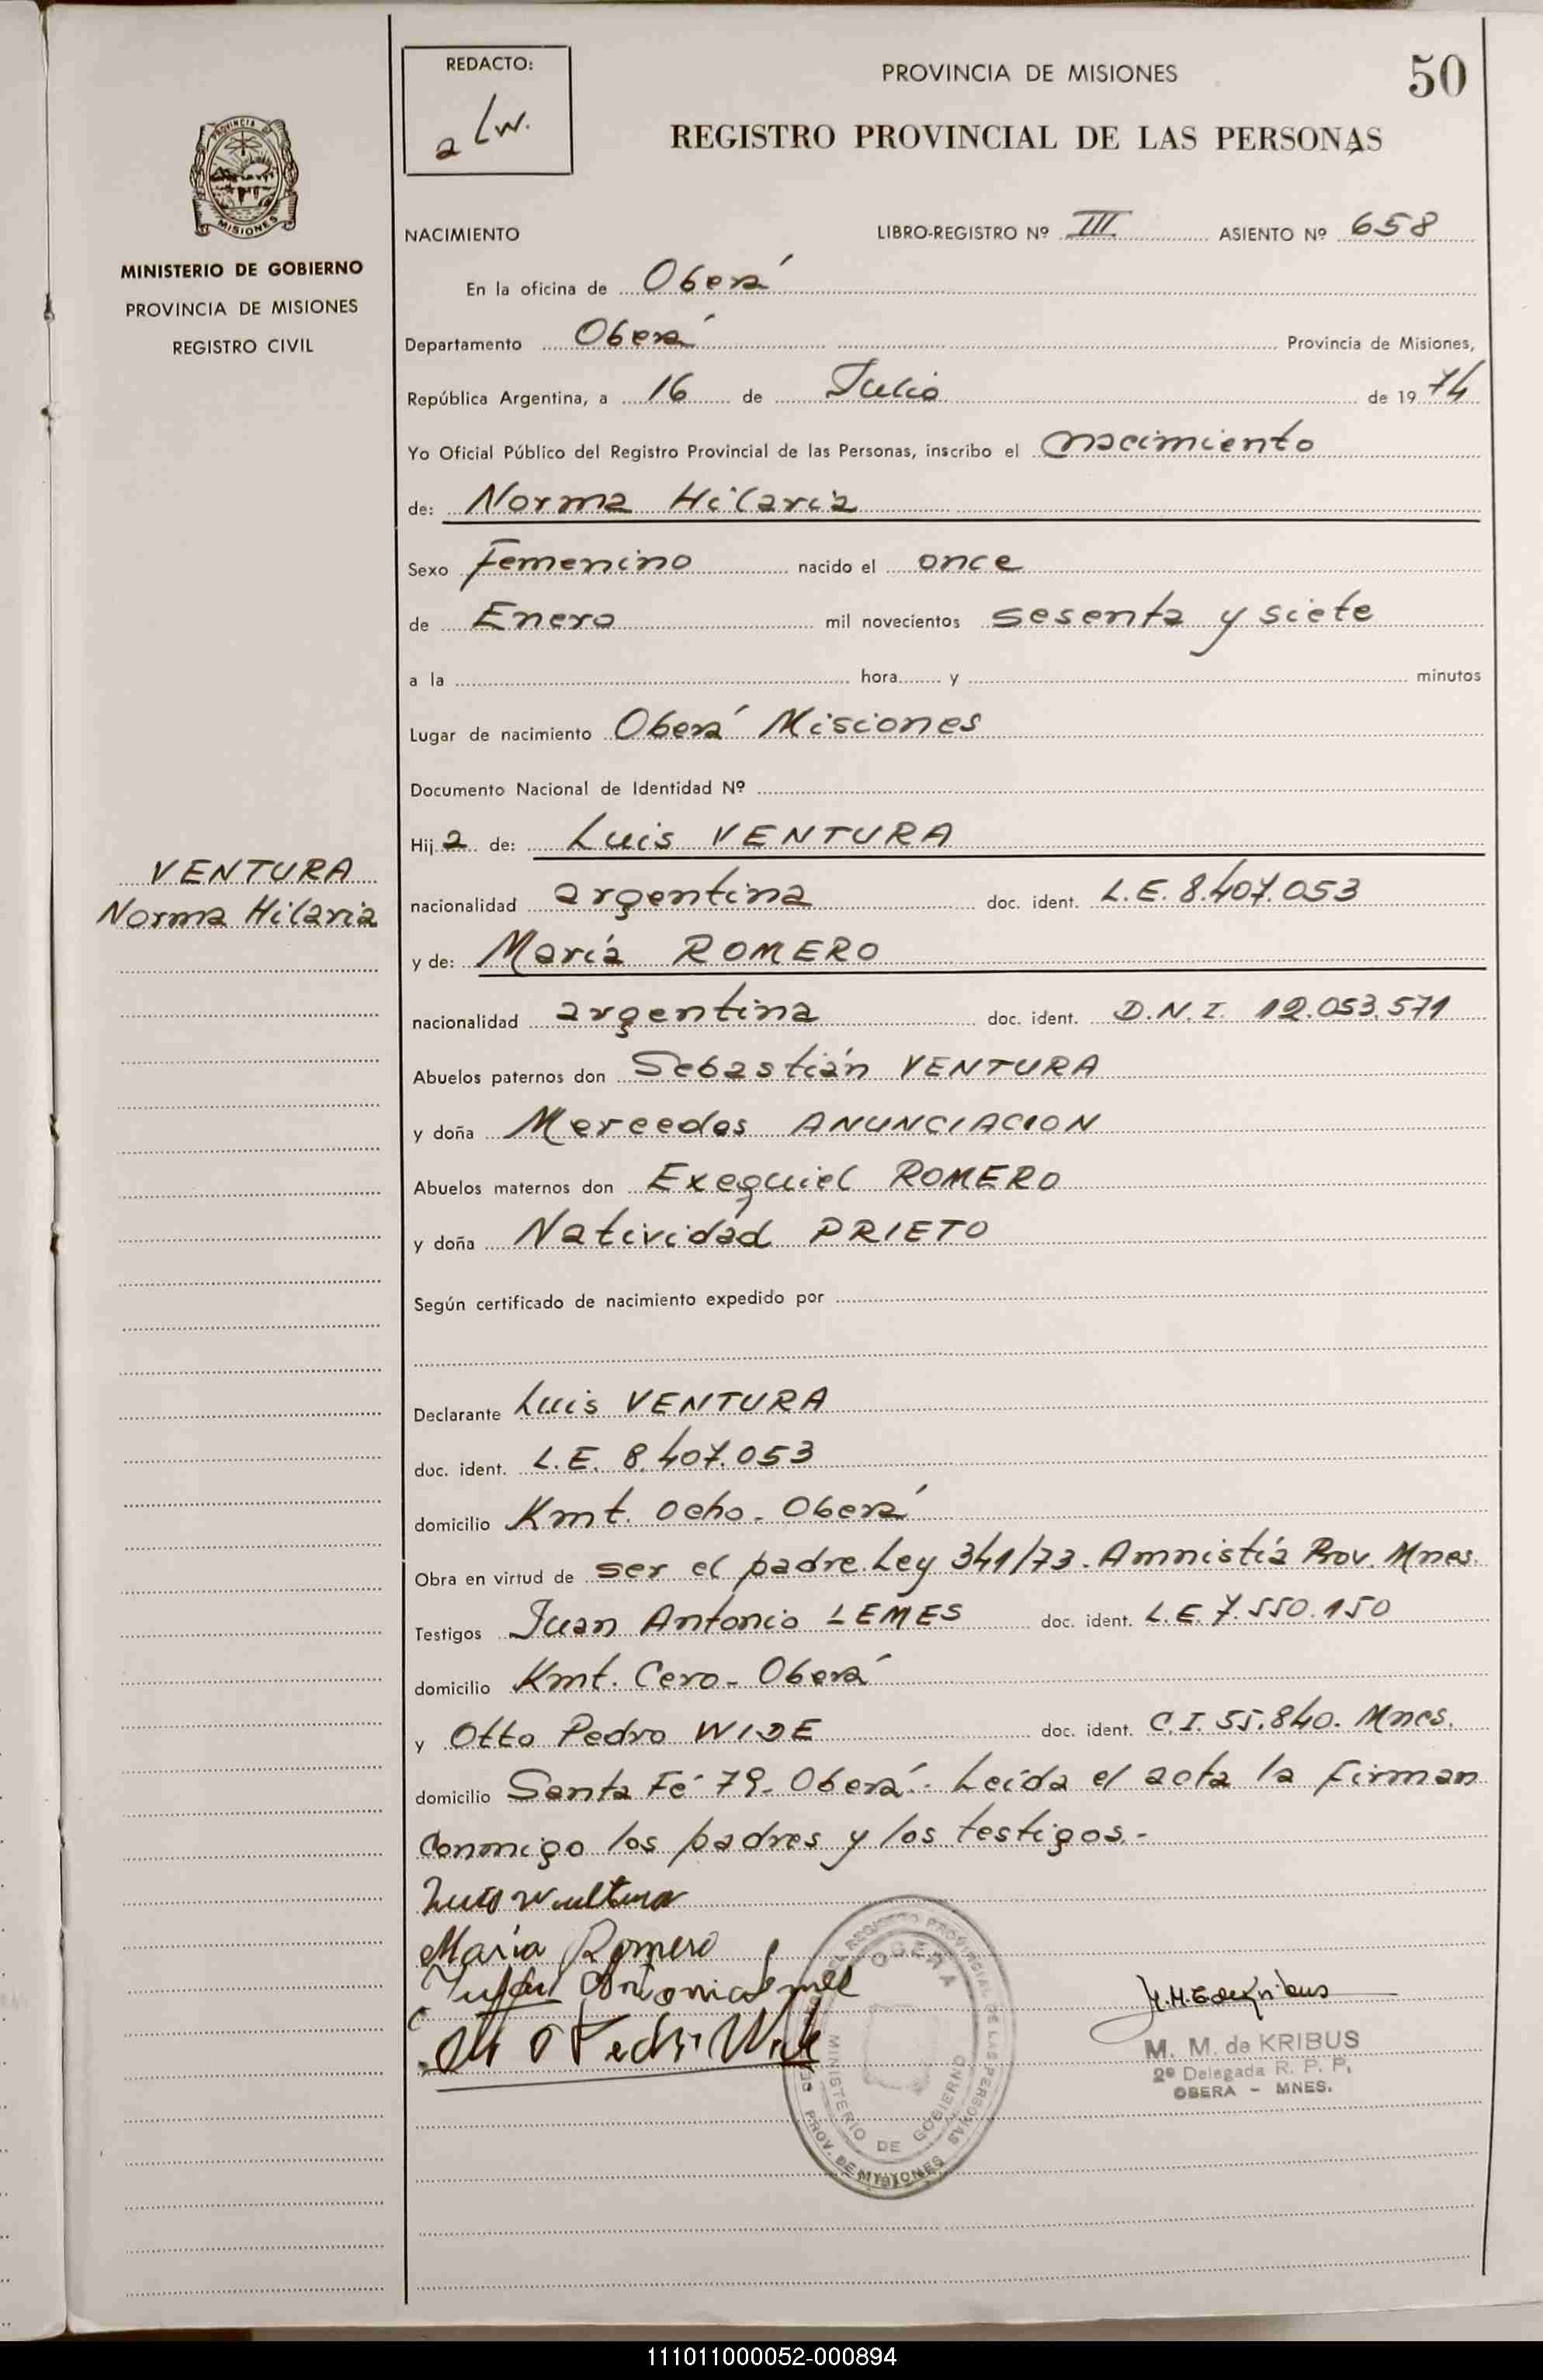 REDACTO:
a Lw.
PROVINCIA DE MISIONES
50
REGISTRO PROVINCIAL DE LAS PERSONAS
PROVINCIA DE
MISIONES
MINISTERIO DE GOBIERNO
PROVINCIA DE MISIONES
REGISTRO CIVIL
NACIMIENTO LIBRO-REGISTRO Nº III ASIENTO Nº 658
En la oficina de Oberá
Departamento Oberá Provincia de Misiones,
República Argentina, a 16 de Julio de 1974
Yo Oficial Público del Registro Provincial de las Personas, inscribo el nacimiento
de: Norma Hilaria
Sexo Femenino nacido el once
de Enero mil novecientos sesenta y siete
a la hora y minutos
Lugar de nacimiento Oberá Misiones
Documento Nacional de Identidad Nº
Hija de: Luis VENTURA
VENTURA
Norma Hilaria
nacionalidad argentina doc. ident. L.E. 8.407.053
y de: María ROMERO
nacionalidad argentina doc. ident. D.N.I. 12.053.571
Abuelos paternos don Sebastián VENTURA
y doña Mercedes ANUNCIACION
Abuelos maternos don Exequiel ROMERO
y doña Natividad PRIETO
Según certificado de nacimiento expedido por
Declarante Luis VENTURA
doc. ident. L.E. 8.407.053
domicilio Kmt. ocho - Oberá
Obra en virtud de ser el padre. Ley 341/73. Amnistía Prov. Mnes.
Testigos Juan Antonio LEMES doc. ident. L.E. 7.550.150
domicilio Kmt. Cero - Oberá
y Otto Pedro WIDE doc. ident. C.I. 55.840. Mnes.
domicilio Santa Fé 79 - Oberá.- Leída el acta la firman
conmigo los padres y los testigos.-
María Romero
M. M. de KRIBUS
2º Delegada R. P. P.
OBERA - MNES.
DEL REGISTRO PROVINCIAL DE LAS PERSONAS
OBERA
MINISTERIO DE GOBIERNO
PROV. DE MISIONES
111011000052-000894